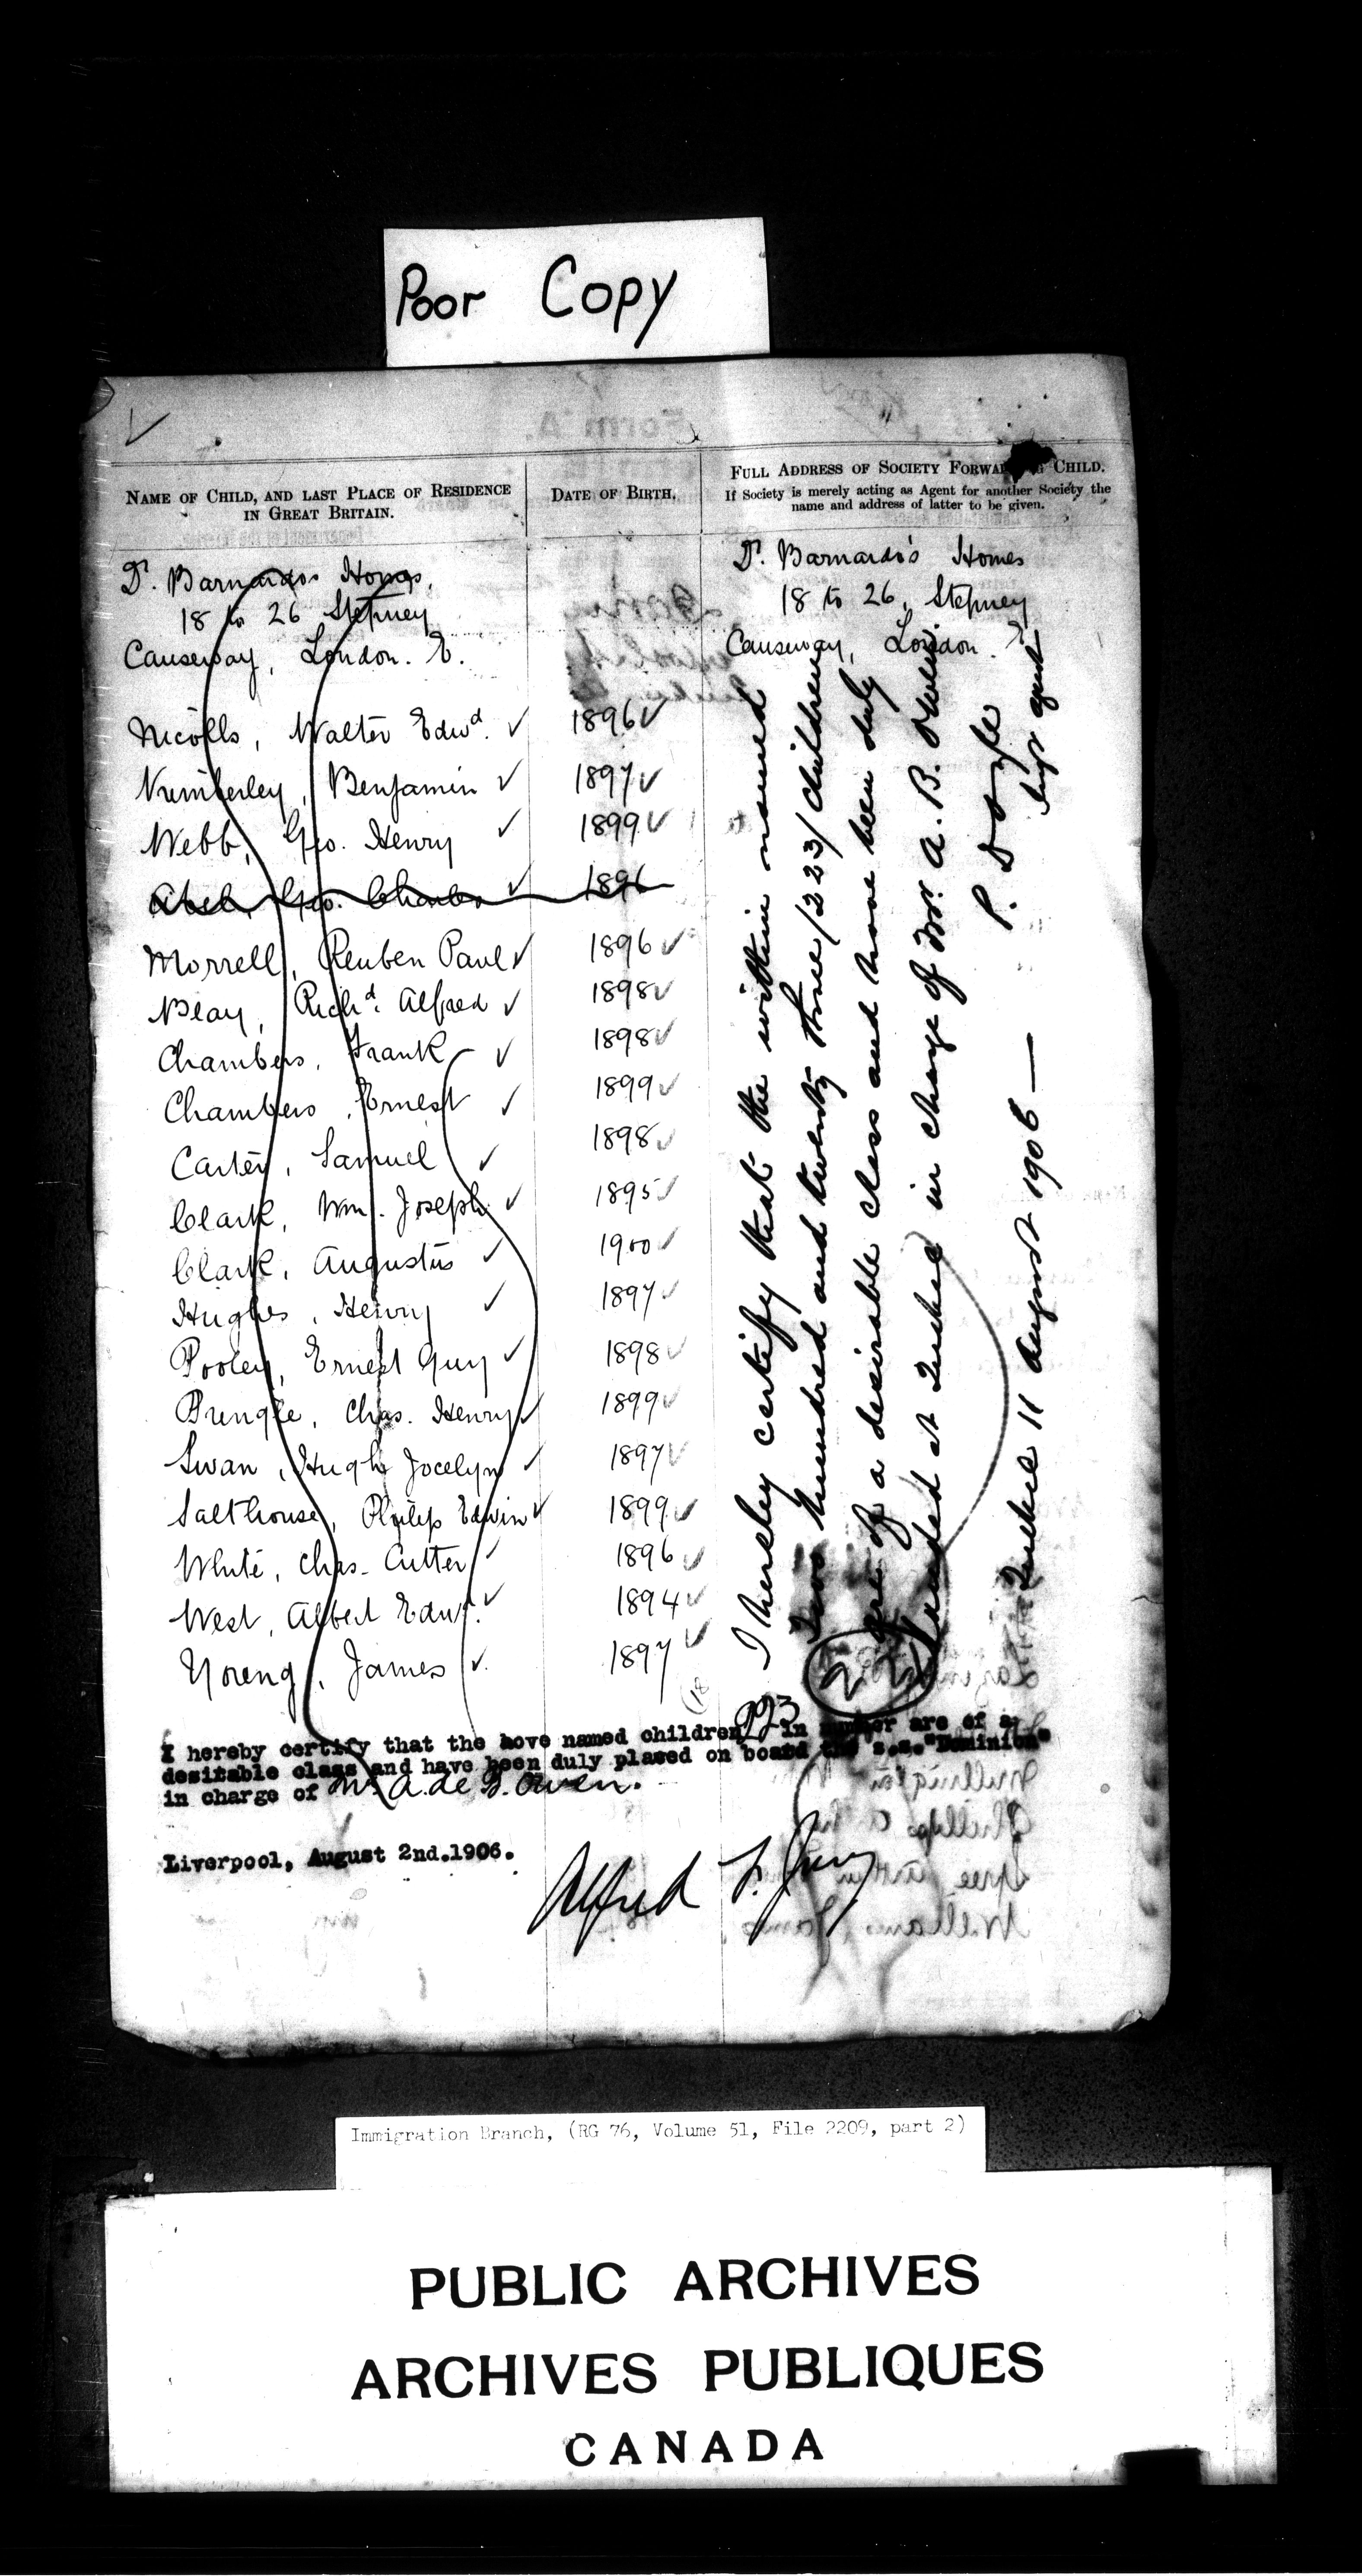 Poor Copy
NAME OF CHILD, AND LAST PLACE OF RESIDENCE
IN GREAT BRITAIN.
DATE OF BIRTH.
FULL ADDRESS OF SOCIETY FORWARDING CHILD.
If Society is merely acting as Agent for another Society the
name and address of latter to be given.
Dr. Barnardos Homes,
18 to 26 Stepney
Causeway, London. E.
Dr. Barnardo's Homes
18 to 26, Stepney
Causeway, London. E
Nicolls, Walter Edwd. ✓ 1896 ✓
Kimberley, Benjamin ✓ 1897 ✓
Webb, Geo. Henry ✓ 1899 ✓
Abel, Geo. Charles ✓ 1896
Morrell, Reuben Paul ✓ 1896 ✓
Blay, Richd. Alfred ✓ 1898 ✓
Chambers, Frank ✓ 1898 ✓
Chambers, Ernest ✓ 1899 ✓
Carter, Samuel ✓ 1898 ✓
Clark, Wm. Joseph ✓ 1895 ✓
Clark, Augustus ✓ 1900 ✓
Hughes, Henry ✓ 1897 ✓
Pooley, Ernest Guy ✓ 1898 ✓
Pringle, Chas. Henry ✓ 1899 ✓
Swan, Hugh Jocelyn ✓ 1897 ✓
Salthouse, Philip Edwin ✓ 1899 ✓
White, Chas. Cutter ✓ 1896 ✓
West, Albert Edwd. ✓ 1894 ✓
Young, James ✓ 1897 ✓
18
I hereby certify that the within named
Two hundred and twenty three /223/ children
are of a desirable class and have been duly
landed at Quebec in charge of Mr. A. B. Owen
P. Doyle
agent
Quebec 11 August 1906 —
I hereby certify that the bove named children 223 in number are of a
desirable class and have been duly placed on board the s.s. "Dominion"
in charge of Mr. A. de B. Owen.
Liverpool, August 2nd.1906.
Alfred F. Jury
Immigration Branch, (RG 76, Volume 51, File 2209, part 2)
PUBLIC ARCHIVES
ARCHIVES PUBLIQUES
CANADA